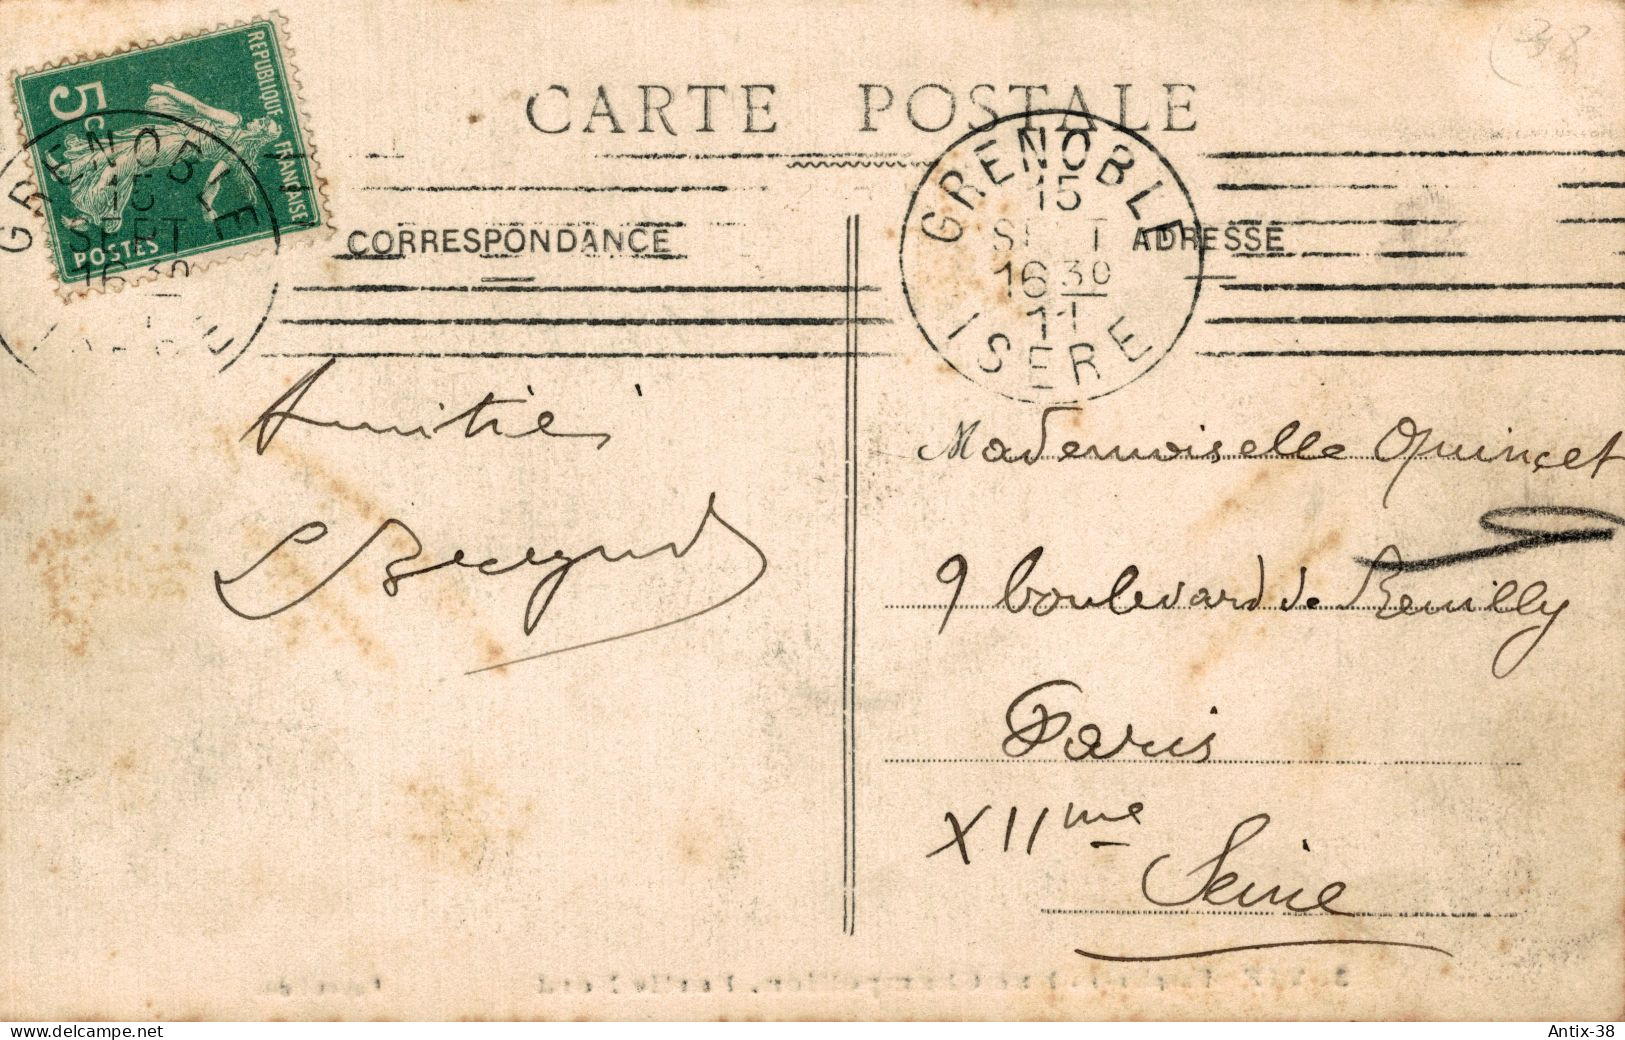 CARTE POSTALE
RÉPUBLIQUE FRANÇAISE
5c
POSTES
GRENOBLE
15
SEPT
16 30
GRENOBLE
15
SEPT
16 30
11
ISERE
CORRESPONDANCE
ADRESSE
Amitiés
Mademoiselle Quinçet
9 boulevard de Reuilly
Paris
XIIme
Seine
38
www.delcampe.net
Antix-38